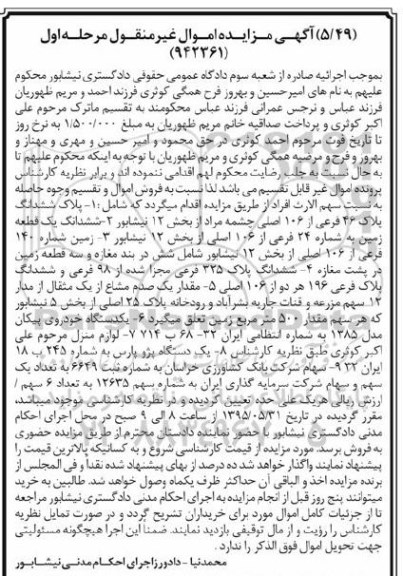 (۵/۴۹) آگهی مزایده اموال غیرمنقول مرحله اول
(۹۴۲۳۶۱)
بموجب اجرائیه صادره از شعبه سوم دادگاه عمومی حقوقی دادگستری نیشابور محکوم
علیهم به نام های امیرحسین و بهروز فرح همگی کوثری فرزند احمد و مریم ظهوریان
فرزند عباس و نرجس عمرانی فرزند عباس محکومند به تقسیم ماترک مرحوم علی
اکبر کوثری و پرداخت صداقیه خانم مریم ظهوریان به مبلغ ۱/۵۰۰/۰۰۰ به نرخ روز
تا تاریخ فوت مرحوم احمد کوثری در حق محمود و امیر حسین و مهری و مهناز و
بهروز و فرح و مرضیه همگی کوثری و مریم ظهوریان با توجه به اینکه محکوم علیهم تا
به حال نسبت به جلب رضایت محکوم لهم اقدامی ننموده اند و برابر نظریه کارشناس
پرونده اموال غیر قابل تقسیم می باشد لذا نسبت به فروش اموال و تقسیم وجوه حاصله
به نسبت سهم الارث افراد از طریق مزایده اقدام میگردد که شامل :۱- پلاک ششدانگ
پلاک ۴۶ فرعی از ۱۰۶ اصلی چشمه مراد از بخش ۱۲ نیشابور ۲-ششدانگ یک قطعه
زمین به شماره ۲۴ فرعی از ۱۰۶ اصلی از بخش ۱۲ نیشابور ۳- زمین شماره ۱۴۰
فرعی از ۱۰۶ اصلی از بخش ۱۲ نیشابور شامل شش در بند مغازه و سه قطعه زمین
در پشت مغازه ۴- ششدانگ پلاک ۳۲۵ فرعی مجزا شده از ۹۸ فرعی و ششدانگ
پلاک فرعی ۱۹۶ هر دو از ۱۰۶ اصلی ۵- مقدار یک صدم مشاع از یک مثقال از مدار
۱۲ سهم مزرعه و قنات جاریه بشرآباد و رودخانه پلاک ۲۵ اصلی از بخش ۵ نیشابور
که هر سهم مقدار ۵۰۰ متر مربع زمین تعلق میگیرد ۶- یکدستگاه خودروی پیکان
مدل ۱۳۸۵ به شماره انتظامی ایران ۳۲- ۶۸ ب ۷۱۴ ۷- لوازم منزل مرحوم علی
اکبر کوثری طبق نظریه کارشناس ۸- یک دستگاه پژو پارس به شماره ۲۴۵ ب ۱۸
ایران ۳۲ ۹- سهام شرکت بانک کشاورزی خراسان به شماره ثبت ۶۶۴۹ به تعداد یک
سهم و سهام شرکت سرمایه گذاری ایران به شماره سهم ۱۲۶۳۵ به تعداد ۶ سهم /
ارزش ریالی هر یک علی حده تعیین گردیده و در نظریه کارشناس موجود میباشد،
مقرر گردیده در تاریخ ۱۳۹۵/۰۵/۳۱ از ساعت ۸ الی ۹ صبح در محل اجرای احکام
مدنی دادگستری نیشابور با حضور نماینده دادستان محترم از طریق مزایده حضوری
به فروش برسد. مورد مزایده از قیمت کارشناسی شروع و به کسانیکه بالاترین قیمت را
پیشنهاد نمایند واگذار خواهد شد. ده درصد از بهای پیشنهاد شده نقداً و فی المجلس از
برنده مزایده اخذ و الباقی آن حداکثر ظرف یکماه وصول خواهد شد. طالبین به خرید
میتوانند پنج روز قبل از انجام مزایده به اجرای احکام مدنی دادگستری نیشابور مراجعه
تا از جزئیات کامل اموال مورد برای خریداران تشریح گردد و در صورت تمایل نظریه
کارشناس را رؤیت و از مال توقیفی بازدید نمایند. ضمناً این اجرا هیچگونه مسئولیتی
جهت تحویل اموال فوق الذکر را ندارد .
محمدنیا - دادورز اجرای احکام مدنی نیشابور